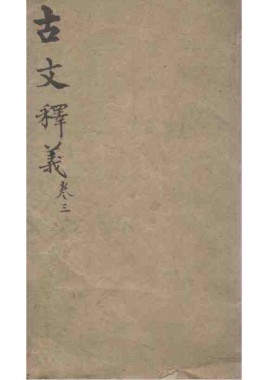 古文釋義卷三